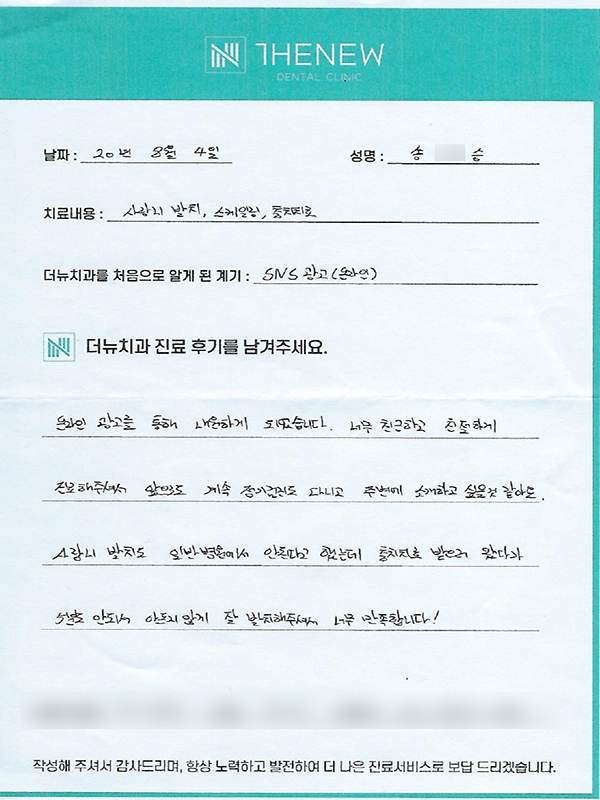 THENEW
DENTAL CLINIC
날짜 : 20년 8월 4일 성명 : 송 승
치료내용 : 사랑니 발치, 스케일링, 충치치료
더뉴치과를 처음으로 알게 된 계기 : SNS 광고(온라인)
더뉴치과 진료 후기를 남겨주세요.
온라인 광고를 통해 내원하게 되었습니다. 너무 친근하고 친절하게
진료해주셔서 앞으로도 계속 정기검진도 다니고 주변에 소개하고 싶을것 같아요.
사랑니 발치도 일반병원에서 안된다고 했는데 충치치료 받으러 왔다가
안되서 아프지 않게 잘 발치해주셔서 너무 만족합니다!
작성해 주셔서 감사드리며, 항상 노력하고 발전하여 더 나은 진료서비스로 보답 드리겠습니다.